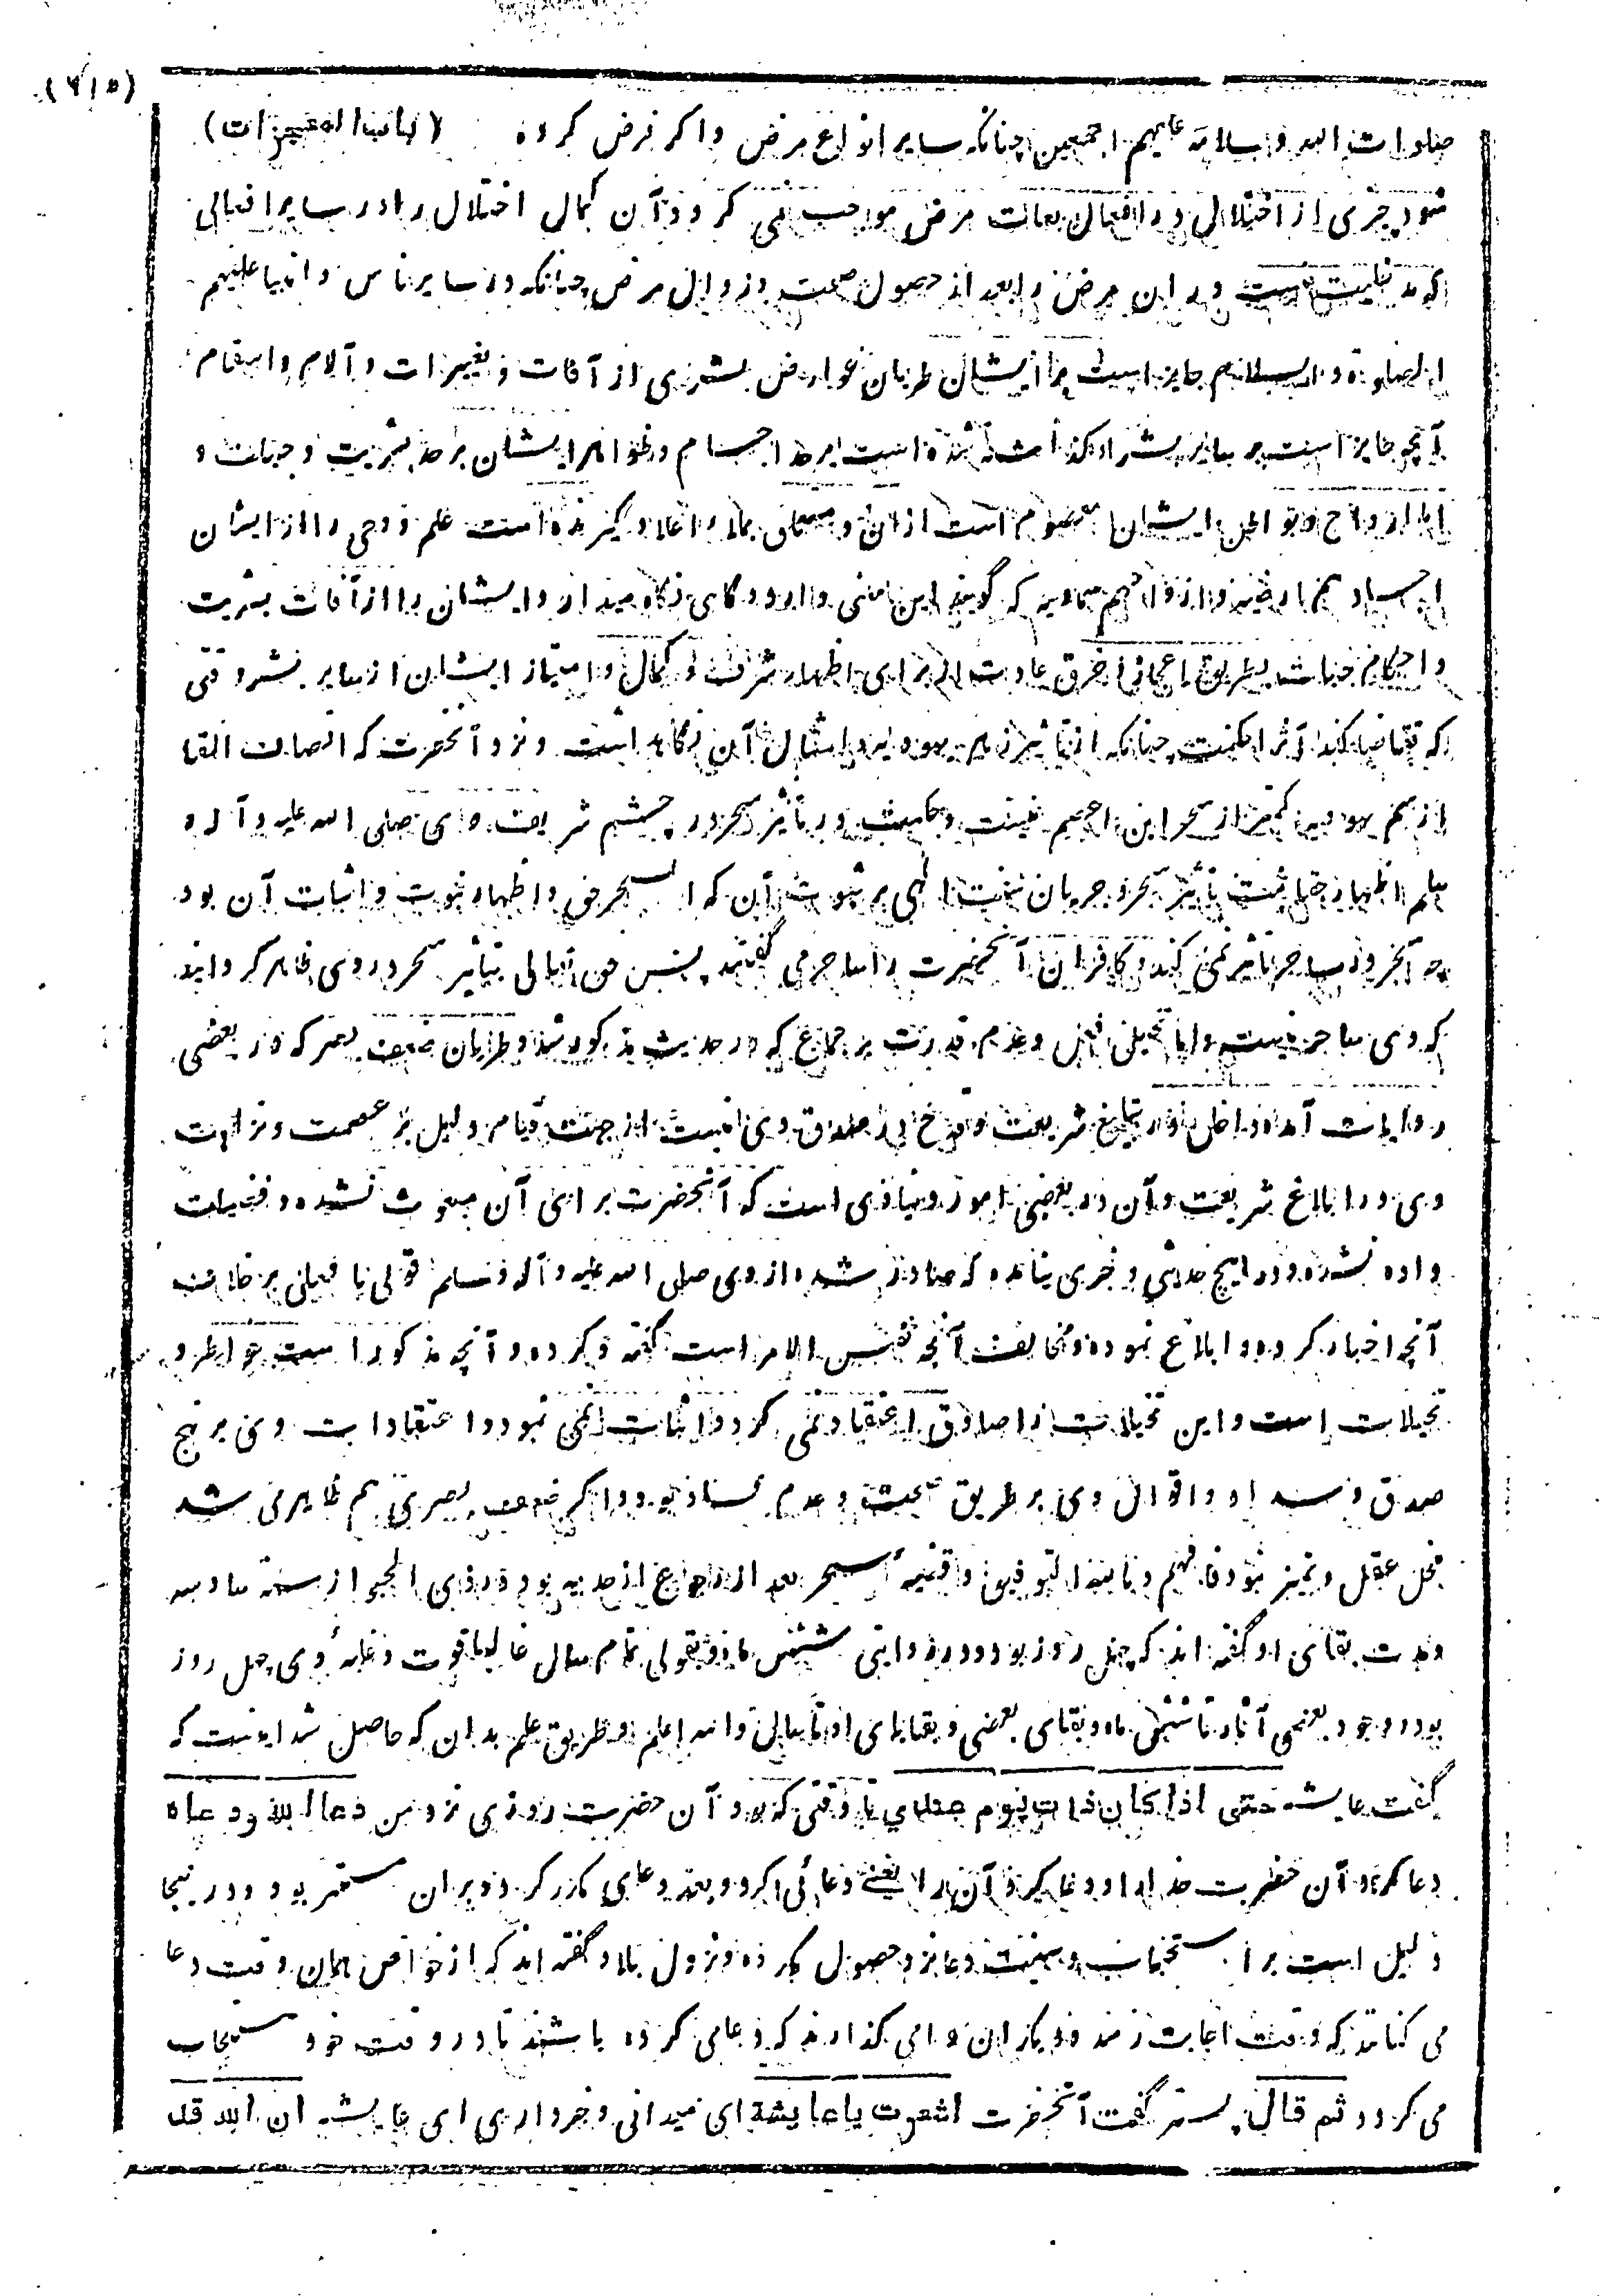 (۶۱۵)
صلوات الله و سلامه علیهم اجمعین چنانکه سایر انواع مرض و اگر فرض کرده (باب المعجزات)
شود چیزی از اختلالی در افعال بعلت مرض موجب نمی گردد آن کمال اختلال را در سایر افعالی
که مرض را بعد از حصول صحت و زوال مرض چنانکه در سایر ناس و انبیا علیهم
الصلوة و السلام جایز است بر ایشان طریان عوارض بشری از آفات و تغیرات و آلام و اسقام
آنچه جایز است بر سایر بشر و گذاشته شده است اجسام و ظواهر ایشان بر حد بشریت و جبلت و
اما ارواح و بواطن ایشان معصوم است ازان و متعلق بملاء اعلا و گیرنده است علم و وحی را از ایشان
که گویند این معنی دارد و گاهی نگاه میدارد ایشان را از آفات بشریت
و احکام جبلت بطریق اعجاز و خرق عادت از برای اظهار شرف و کمال و امتیاز ایشان از سایر بشر وقتی
که تقاضا کند آنرا حکمت چنانکه از تاثیر زهر یهودیه و امثال آن نگاه داشت و نزد آنحضرت که
از سم یهودیه کمتر از سحر ابن اعصم نیست و حکمت در تاثیر سحر در جسم شریف وی صلی الله علیه و آله و
سلم اظهار حقانیت تاثیر سحر و جریان سنت الهی بر ثبوت آن که السحر حق و اظهار نبوت و اثبات آن بود
چه سحر در ساحر تاثیر نمی کند و کافران آنحضرت را ساحر می گفتند پس حق تعالی بتاثیر سحر در وی ظاهر گردانید
که وی ساحر نیست و اما تخیل فعل و عدم قدرت بر جماع که در حدیث مذکور شد و طریان ضعف بصر که در بعضی
روایات آمده داخل در تبلیغ شریعت و قدح در صدق وی نیست از جهت قیام دلیل بر عصمت و نزاهت
وی در ابلاغ شریعت و آن در بعضی امور دنیاوی است که آنحضرت برای آن مبعوث نشده و فضیلت
داده نشده و در هیچ حدیثی و خبری نیامده که صادر شده از وی صلی الله علیه و آله و سلم قولی یا فعلی بر خلاف
آنچه اخبار کرده و ابلاغ نموده و مخالف آنچه نفس الامر است گفته و کرده و آنچه مذکور است خواطر و
تخیلات است و این تخیلات را صادق اعتقاد نمی کرد و اثبات نمی نمود و اعتقادات وی بر نهج
صدق و سداد و اقوال وی بر طریق صحت و عدم فساد بود و اگر ضعف بصری هم ظاهر می شد
مخل عقل و تمیز نبود فافهم و بالله التوفیق و قضیۀ سحر بعد از رجوع از حدیبیه بود در ذی الحجه از سنۀ سادسه
و مدت بقای او گفته اند که چهل روز بود و در روایتی شش ماه و بقولی تمام سال غالبا قوت و غلبۀ وی چهل روز
بود و وجود بعضی آثار تا شش ماه و بقای بعضی و بقایای او تا سالی و الله اعلم و طریق علم بدان که حاصل شد اینست که
گفت عایشه حتی اذا کان ذات یوم عندی تا وقتی که بود آن حضرت روزی نزد من دعا الله و دعاه
دعا کرد آن حضرت خدا را و دعا کرد آن را یعنی دعائی کرد و بعد دعای مکرر کرد و بر آن مستمر بود و در اینجا
دلیل است بر استحباب و سنیت دعا نزد حصول مکروه و نزول بلا و گفته اند که از خواص همان وقت دعا
می کنانند که وقت اجابت رسد و دیگران را می گذارند که دعا می کرده باشند تا در وقت خود مستجاب
می گردد ثم قال پستر گفت آنحضرت اشعرت یا عایشة ای میدانی و خبرداری ای عایشه ان الله قد